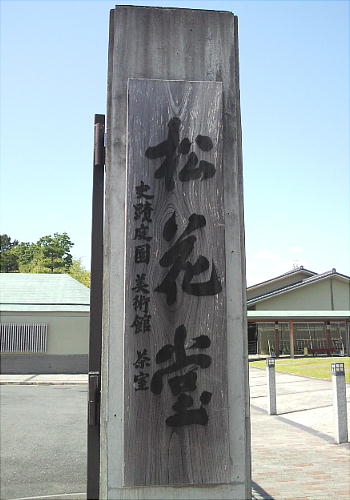 松花堂
史蹟庭園 美術館 茶室